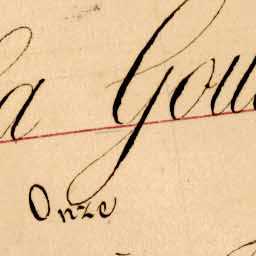 la Gou
Onze